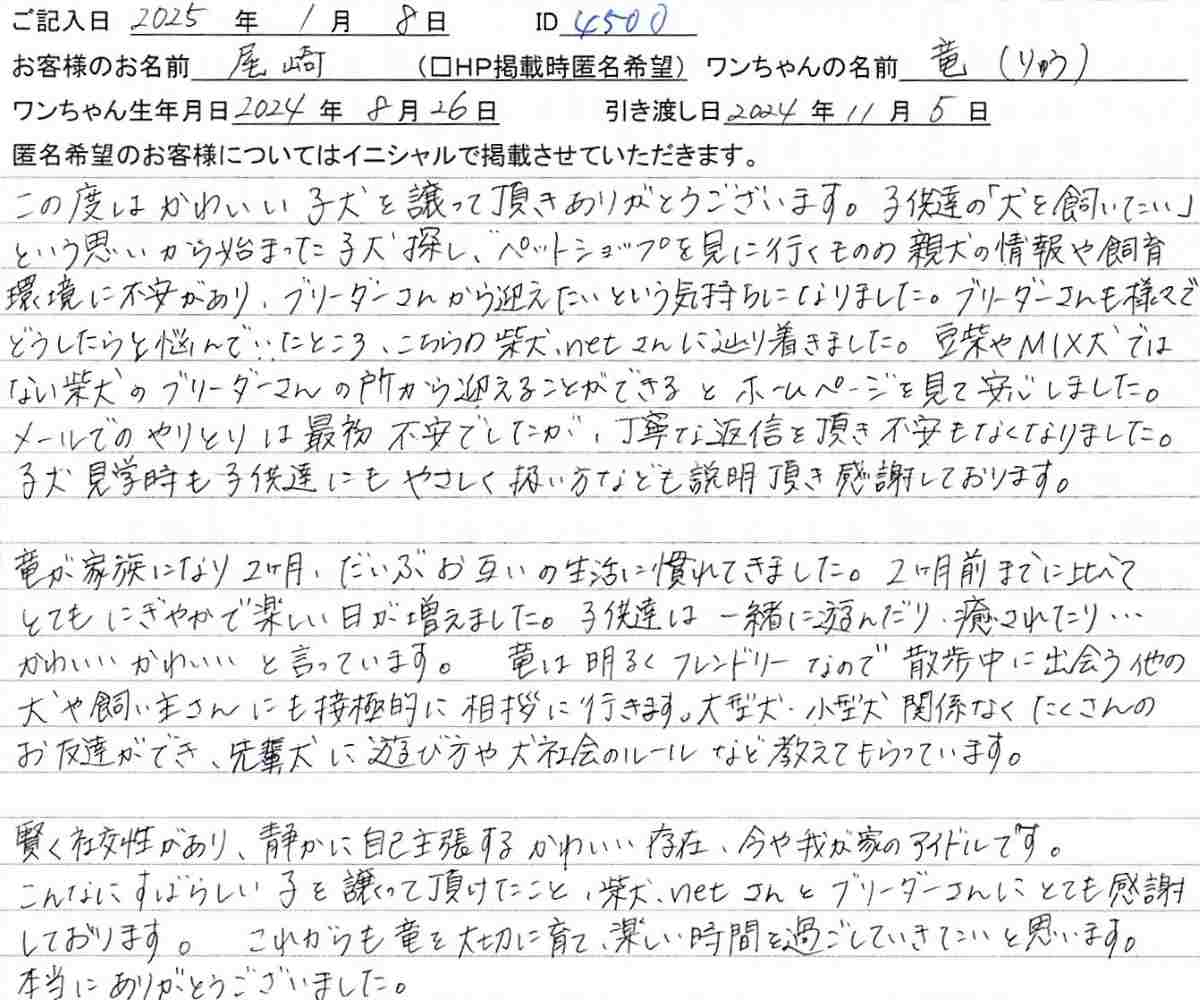 ご記入日 2025 年 1 月 8 日 ID 4500
お客様のお名前 尾崎 (□HP掲載時匿名希望) ワンちゃんの名前 竜 (りゅう)
ワンちゃん生年月日 2024 年 8 月 26 日 引き渡し日 2024 年 11 月 5 日
匿名希望のお客様についてはイニシャルで掲載させていただきます。
この度はかわいい子犬を譲って頂きありがとうございます。子供達の「犬を飼いたい」
という思いから始まった子犬探し、ペットショップを見に行くものの親犬の情報や飼育
環境に不安があり、ブリーダーさんから迎えたいという気持ちになりました。ブリーダーさんも様々で
どうしたらと悩んでいたところ、こちらの柴犬.netさんに辿り着きました。豆柴やMIX犬では
ない柴犬のブリーダーさんの所から迎えることができるとホームページを見て安心しました。
メールでのやりとりは最初不安でしたが、丁寧な返信を頂き不安もなくなりました。
子犬見学時も子供達にもやさしく扱い方なども説明頂き感謝しております。
竜が家族になり2ヶ月、だいぶお互いの生活に慣れてきました。2ヶ月前までに比べて
とてもにぎやかで楽しい日が増えました。子供達は一緒に遊んだり、癒されたり…
かわいいかわいいと言っています。 竜は明るくフレンドリーなので散歩中に出会う他の
犬や飼い主さんにも接極的に相拶に行きます。大型犬・小型犬関係なくたくさんの
お友達ができ、先輩犬に遊び方や犬社会のルールなど教えてもらっています。
賢く社交性があり、静かに自己主張するかわいい存在、今や我が家のアイドルです。
こんなにすばらしい子を譲って頂けたこと、柴犬.netさんとブリーダーさんにとても感謝
しております。 これからも竜を大切に育て、楽しい時間を過ごしていきたいと思います。
本当にありがとうございました。